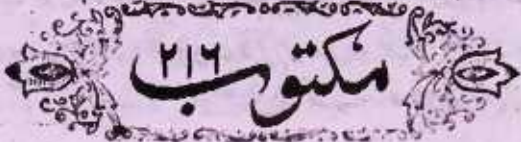 مکتوب ۲۱۶